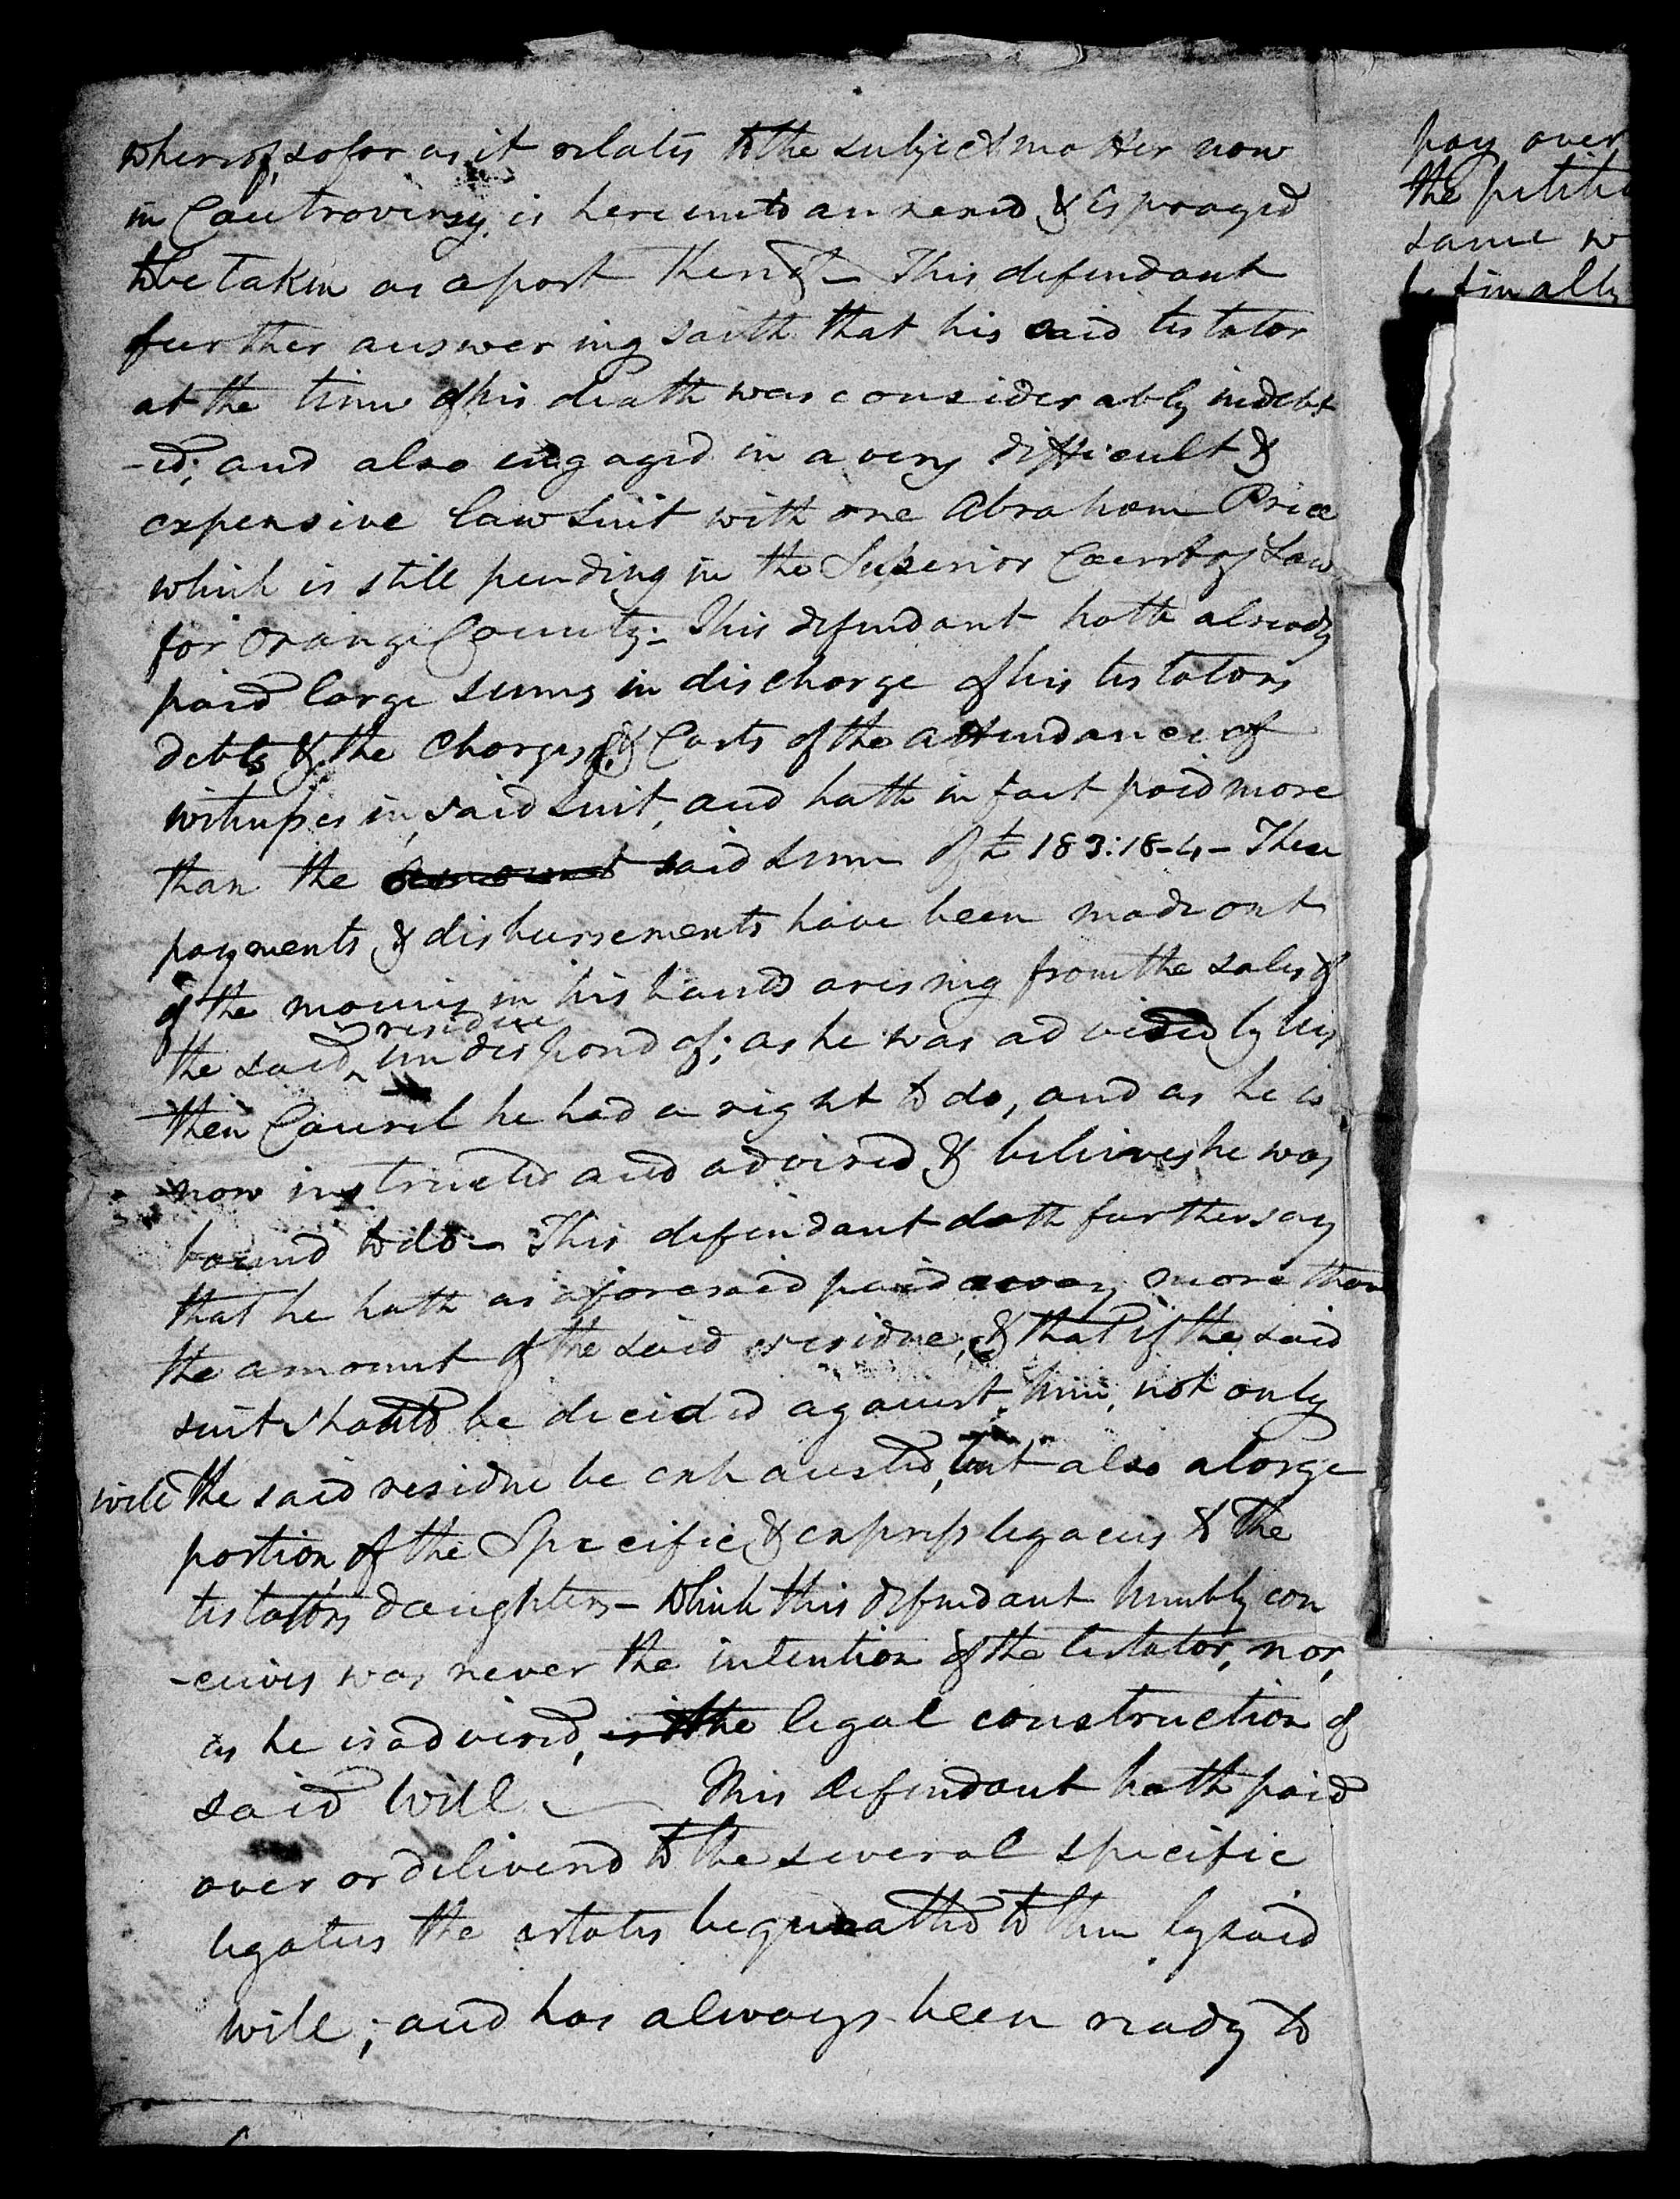 whereof, so far as it relates to the subject matter now
in Controversy, is hereunto annexed & is prayed
to be taken as a part thereof - This defendant
further answering saith that his said testator
at the time of his death was considerably indebt
-ed; and also engaged in a very difficult &
expensive law suit with one Abraham Price
which is still pending in the Superior Court of Law
for Orange County - This defendant hath already
paid large sums in discharge of his testators
debts & the charges & Costs of the attendance of
witnesses in said suit, and hath in fact paid more
than the amount said sum of £ 183:18-4 - These
payments & disbursements have been made out
of the monies in his hands arising from the sales of
the said residue undisposed of; as he was advised by his
then Councel he had a right to do, and as he is
now instructed and advised & believes he was
bound to do - This defendant doth further say
that he hath as aforesaid paid away more than
the amount of the said residue, & that if the said
suit should be decided against him, not only
will the said residue be exhausted, but also a large
portion of the Specific & express legacies to the
testators daughters - Which this defendant humbly con
-ceives was never the intention of the testator, nor,
as he is advised, is the legal construction of
said Will - This defendant hath paid
over or delivered to the several specific
legatees the estates bequeathed to them by said
will; and has always been ready to
pay over
the petiti
same w
be finally